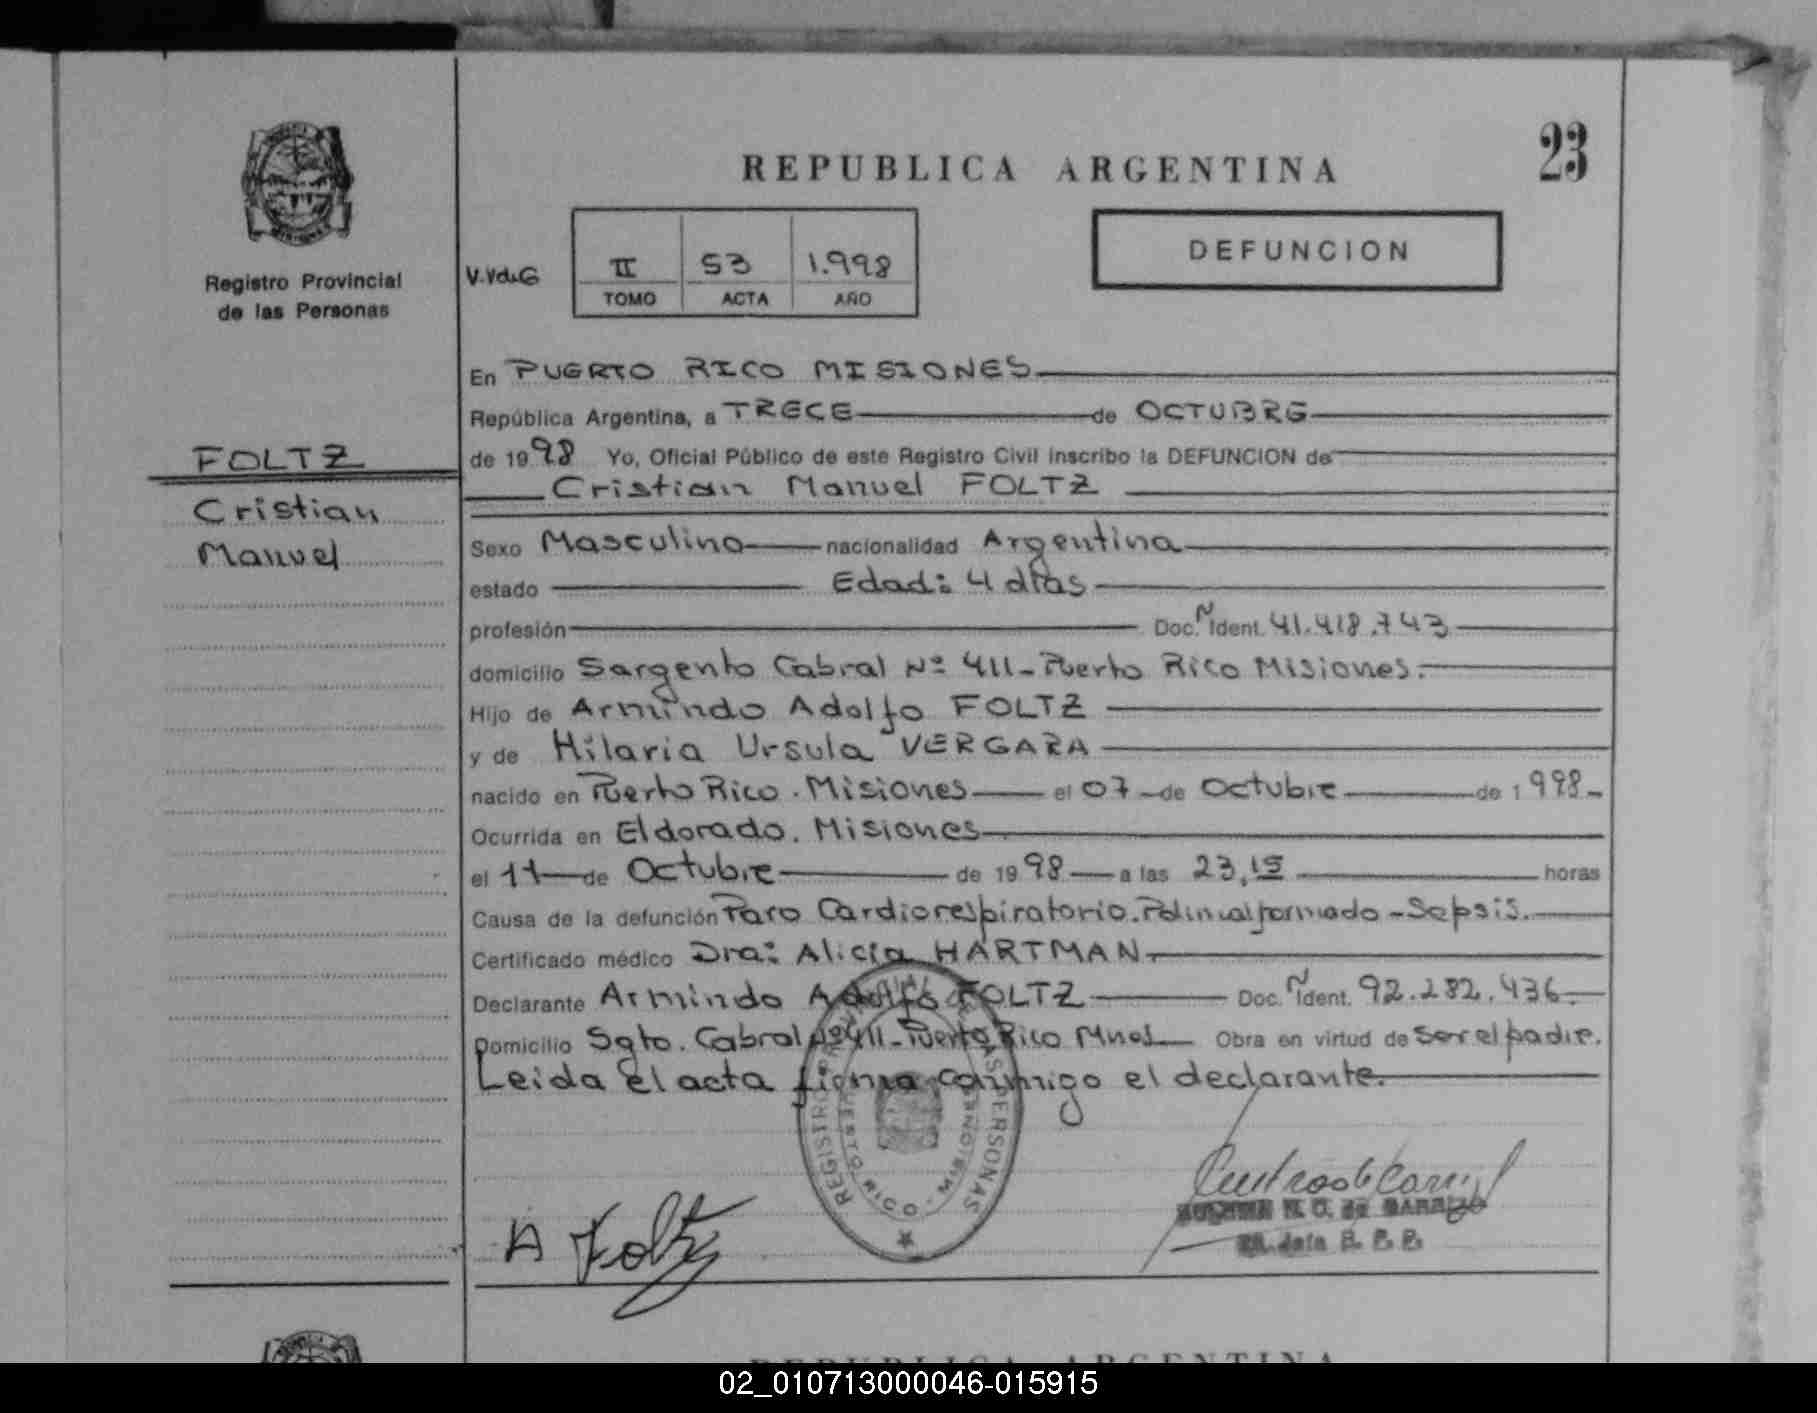 REPUBLICA ARGENTINA
23
Registro Provincial
de las Personas
V.VdeG
II 53 1.998
TOMO ACTA AÑO
DEFUNCION
FOLTZ
Cristian
Manuel
En PUERTO RICO MISIONES
República Argentina, a TRECE de OCTUBRE
de 1998 Yo, Oficial Público de este Registro Civil inscribo la DEFUNCION de
Cristian Manuel FOLTZ
Sexo Masculino nacionalidad Argentina
estado Edad: 4 días
profesión Doc. Ñ Ident. 41.418.743
domicilio Sargento Cabral Nº 411 - Puerto Rico Misiones.
Hijo de Armindo Adolfo FOLTZ
y de Hilaria Ursula VERGARA
nacido en Puerto Rico. Misiones el 07 de Octubre de 1998-
Ocurrida en Eldorado. Misiones
el 11 de Octubre de 1998 a las 23,15 horas
Causa de la defunción Paro Cardiorespiratorio. Polimalformado - Sepsis.
Certificado médico Dra: Alicia HARTMAN
Declarante Armindo Adolfo FOLTZ Doc. Ñ Ident. 92.282.436.
Domicilio Sgto. Cabral Nº 411 - Puerto Rico Mnes Obra en virtud de Ser el padre.
Leida el acta firma conmigo el declarante.
REGISTRO PROVINCIAL DE LAS PERSONAS
PUERTO RICO - MISIONES
A Foltz
R. P. P.
REPUBLICA ARGENTINA
02_010713000046-015915